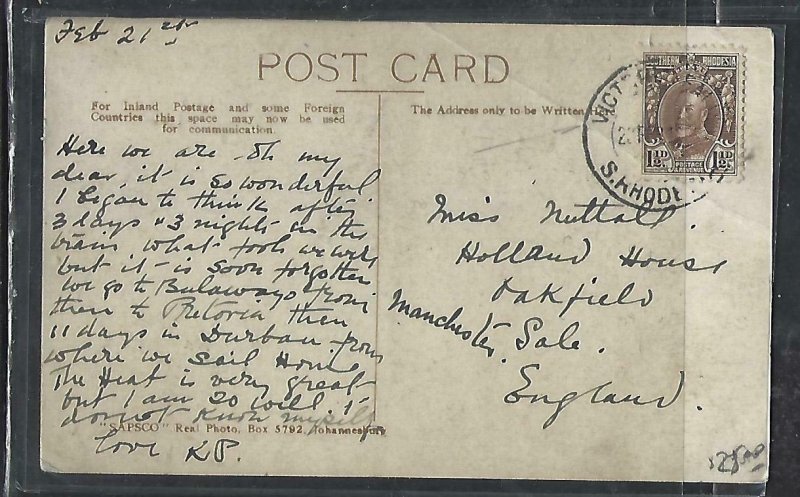 Feb 21st
POST CARD
For Inland Postage and some Foreign
Countries this space may now be used
for communication.
The Address only to be Written
SOUTHERN RHODESIA
1½D.
POSTAGE
& REVENUE
1½D.
VICT
S. RHODE
Here we are - Oh my
dear, it is so wonderful
I began to think after
3 days & 3 nights in the
trains what fools we were
but it is soon forgotten
we go to Bulawayo from
then to Pretoria then
11 days in Durban from
where we sail Home
The Heat is very great
but I am so well I
do not know myself
Love KP.
Miss Nuttall
Holland House
Oakfield
Manchester. Sale.
England.
"SAPSCO" Real Photo, Box 5792, Johannesburg